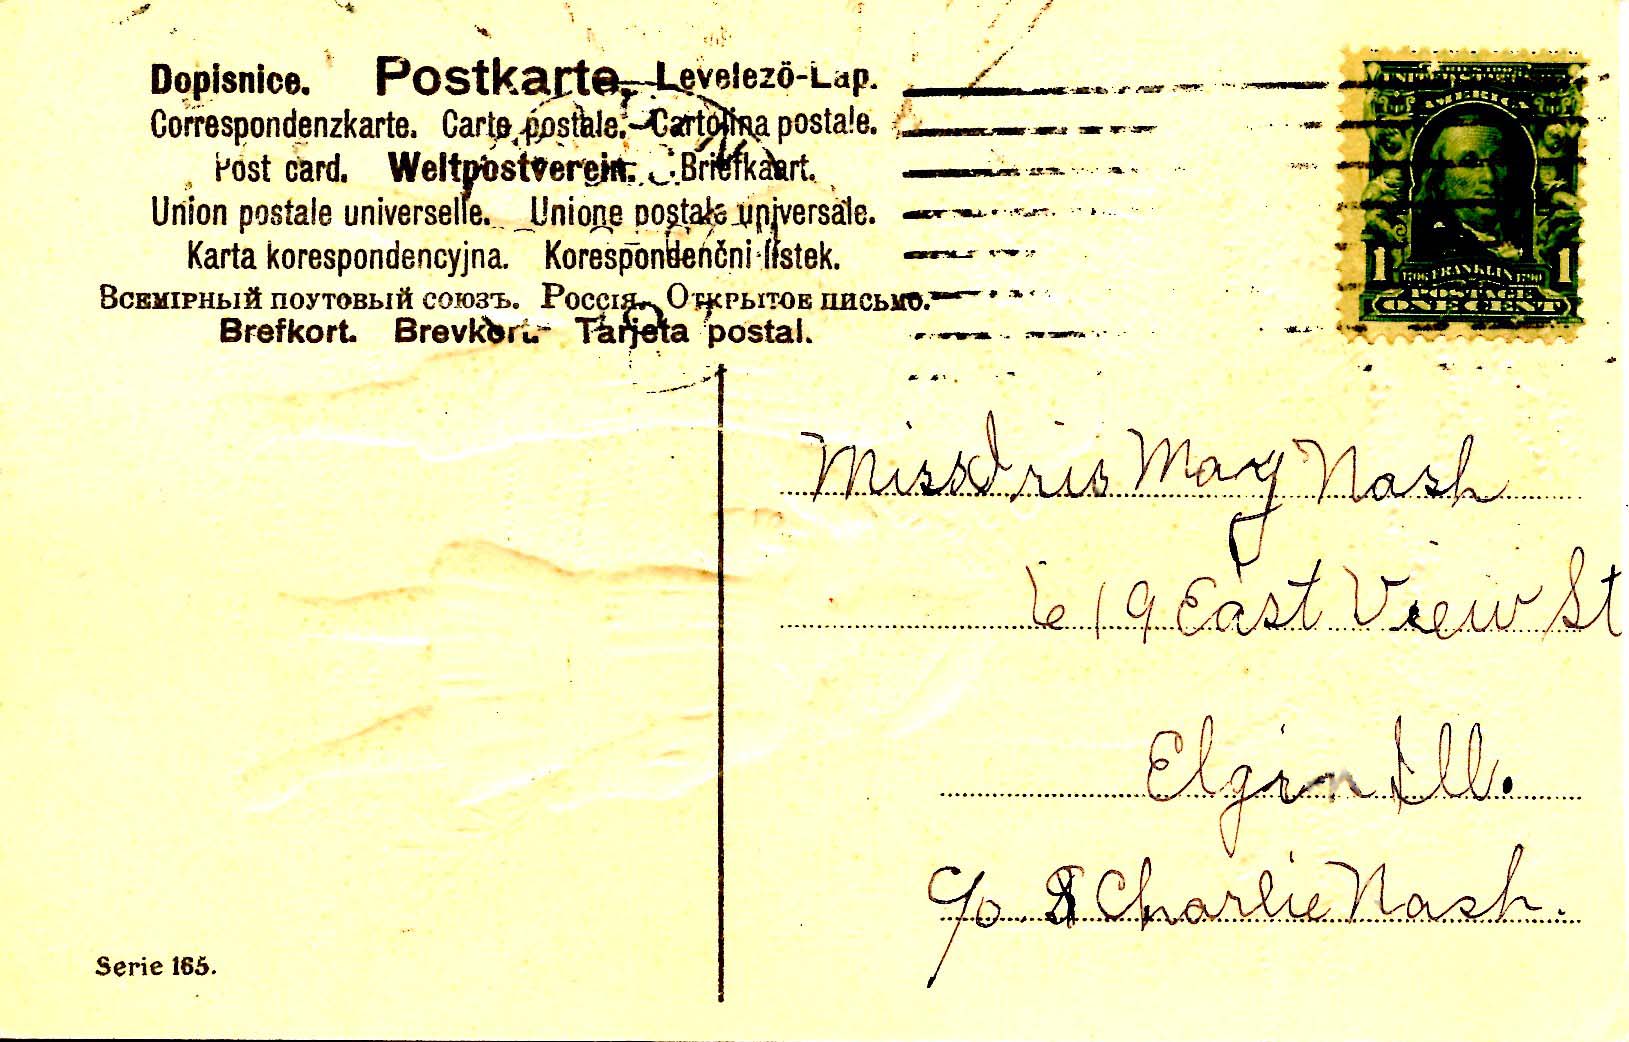 Dopisnice. Postkarte. Levelező-Lap.
Correspondenzkarte. Carte postale. Cartolina postale.
Post card. Weltpostverein. Briefkaart.
Union postale universelle. Unione postale universale.
Karta korespondencyjna. Korespondenční lístek.
Всемірный поутовый союзъ. Россія. Открытое письмо.
Brefkort. Brevkort. Tarjeta postal.
UNITED STATES OF
AMERICA
1 1706 FRANKLIN 1790 1
POSTAGE
ONE CENT
Miss Iris May Nash
619 East View St
Elgin Ill.
c/o Charlie Nash.
Serie 165.